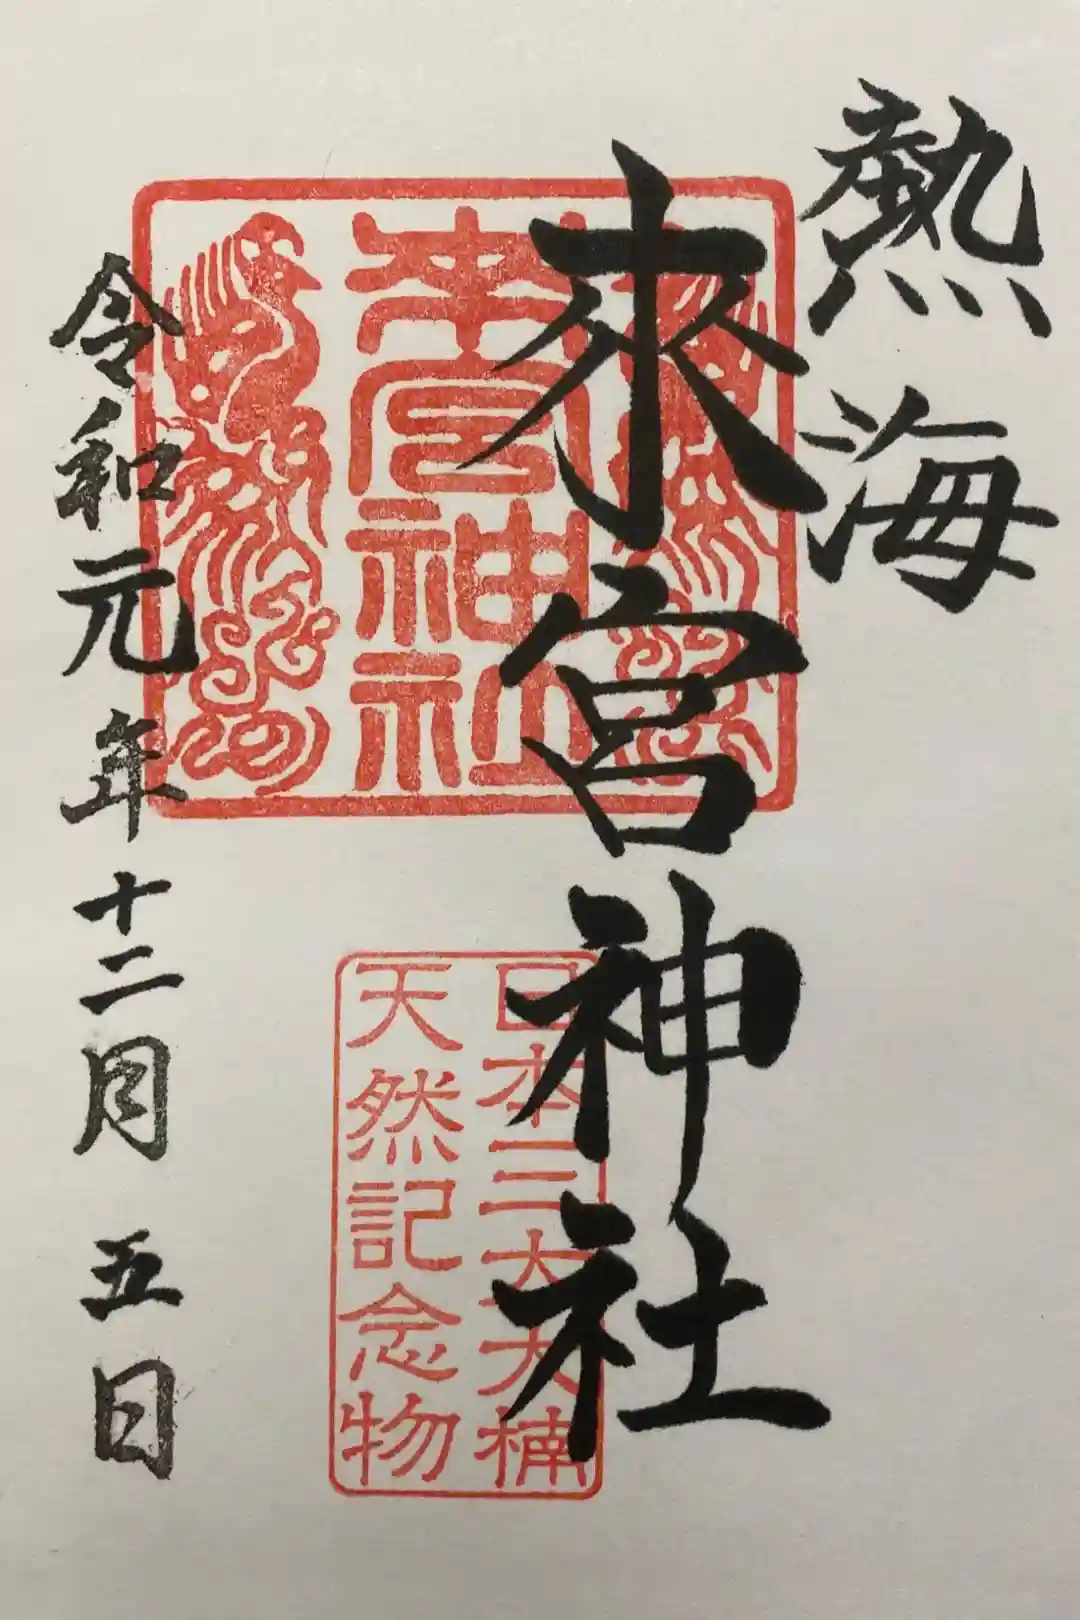 熱海
來宮神社
來宮神社
日本三大大楠
天然記念物
令和元年十二月五日